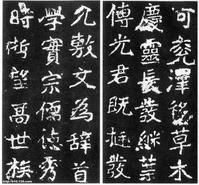 河兖澤移草木
慶靈長發繼葉
傳光君既挺發
允敷文為辭首
學實宗儒德秀
時哲望高世族